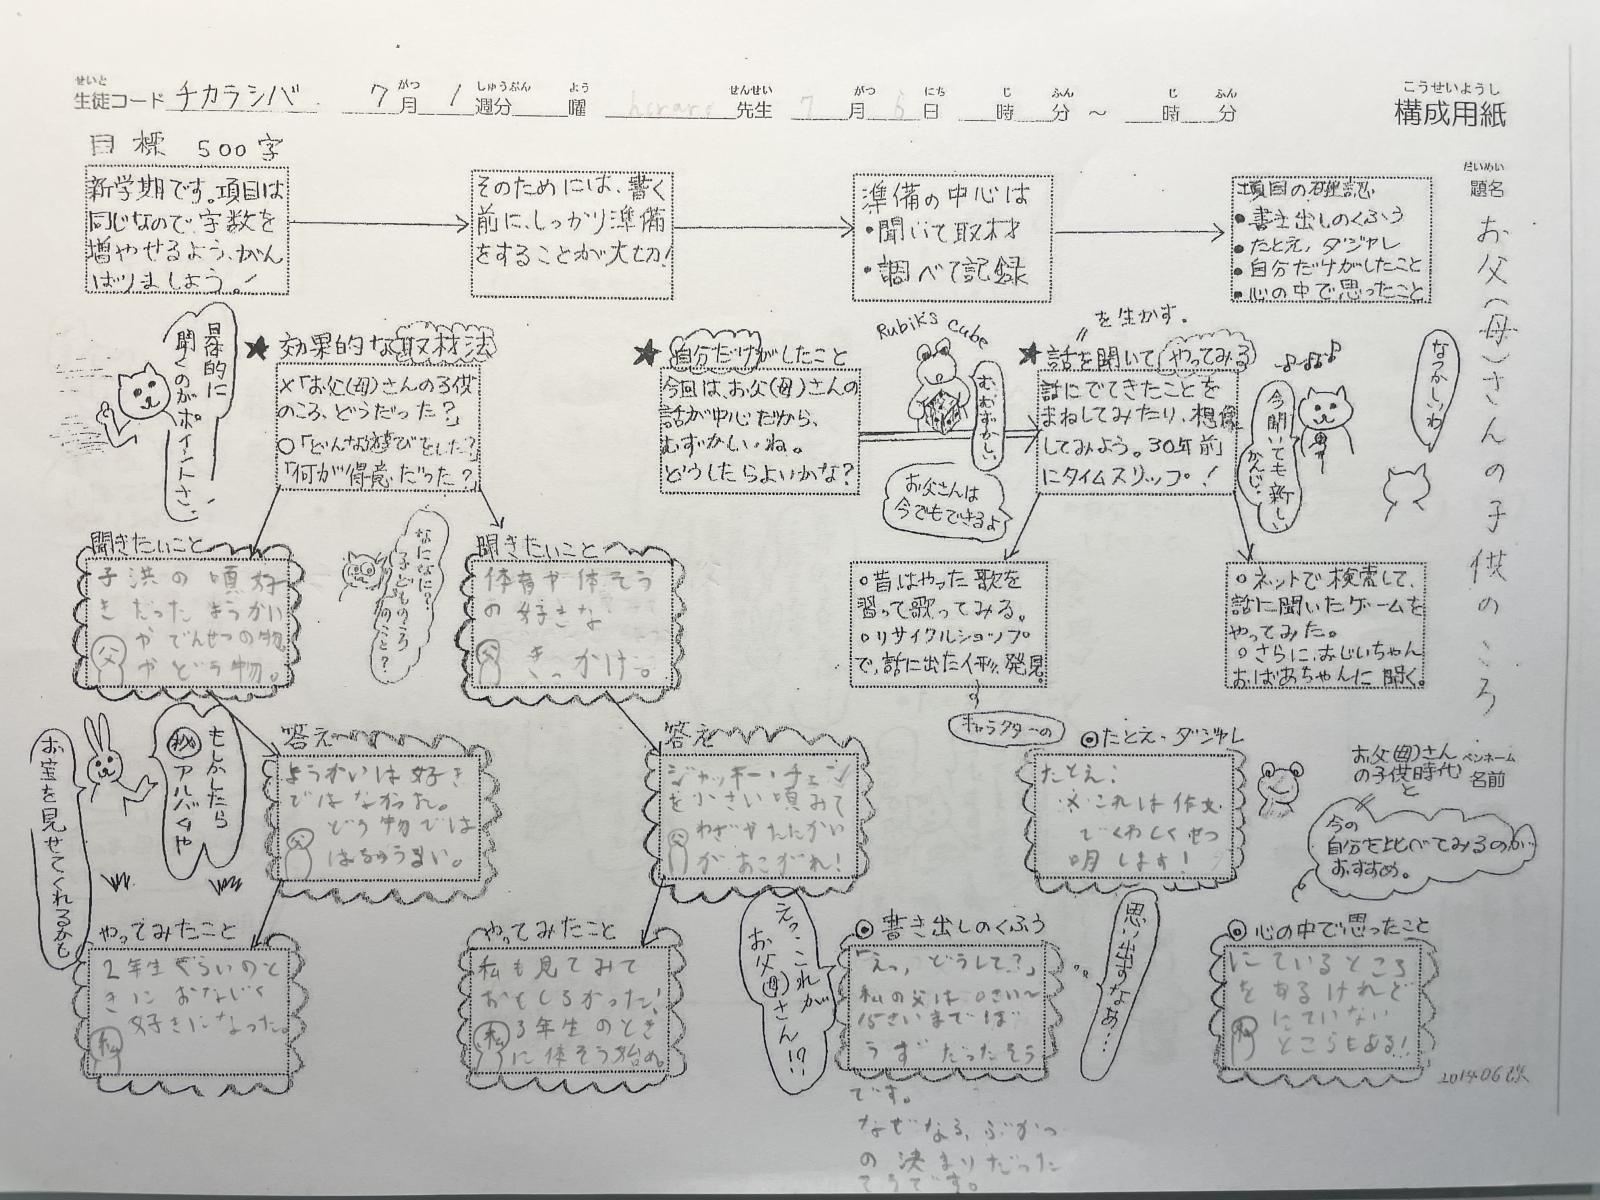 せいと
生徒コード チカラシバ 7 がつ 月 1 しゅうぶん 週分 よう 曜 せんせい 先生 7 がつ 月 6 にち 日 じ 時 ふん 分 ～ じ 時 ふん 分
こうせいようし
構成用紙
目標 500字
だいめい
題名
お父(母)さんの子供のころ
新学期です。項目は
同じなので、字数を
増やせるよう、がん
ばりましょう。!
そのためには、書く
前に、しっかり準備
をすることが大切!
準備の中心は
・聞いて取材
・調べて記録
項目の確認
・書き出しのくふう
・たとえ、ダジャレ
・自分だけがしたこと
・心の中で思ったこと
具体的に
聞くのがポイントさ。
★効果的な取材法
×「お父(母)さんの子供
のころ、どうだった?」
○「どんな遊びをした?」
「何が得意だった?」
★自分だけがしたこと
今回は、お父(母)さんの
話が中心だから、
むずかしいね。
どうしたらよいかな?
Rubik's Cube
むむずかしい
お父さんは
今でもできるよ
〃を生かす。
★話を聞いてやってみる
話にでてきたことを
まねしてみたり、想像
してみよう。30年前
にタイムスリップ!
今聞いても新しい
かんじ。
なつかしいわ
聞きたいこと
子洪の頃好
きだったようかい
かでんせつの物
かどう物。
父
なになに?
子どものころ
のこと?
聞きたいこと
体育や体そう
の好きな
きっかけ。
父
○昔はやった歌を
習って歌ってみる。
○リサイクルショップ
で、話に出た人形発見。
キャラクターの
○ネットで検索して、
話に聞いたゲームを
やってみた。
○さらに、おじいちゃん
おばあちゃんに聞く。
もしかしたら
㊙アルバムや
お宝を見せてくれるかも
答え
ようかいは好き
ではなかった。
どう物では
はるゅうまい。
父
答え
ジャッキー・チェン
を小さい頃みて
わざやたたかい
があこがれ!
父
◎たとえ・ダジャレ
たとえ:
※これは作文
でくわしくせつ
明します!
お父(母)さん
の子供時代と
ペンネーム
名前
今の
自分を比べてみるのが
おすすめ。
やってみたこと
2年生ぐらいのと
きにおなじく
好きになった。
私
やってみたこと
私も見てみて
おもしろかった!
3年生のとき
に体そう始め。
私
えっ、これが
お父(母)さん!?
◎書き出しのくふう
「えっ、どうして?」
私の父は0さい～
15さいまでぼ
うずだったそう
です。
なぜなら、ぶかつ
の決まりだった
そうです。
思い出すなあ…
◎心の中で思ったこと
にているところ
をあるけれど
にていない
ところもある!
私
2014.06改